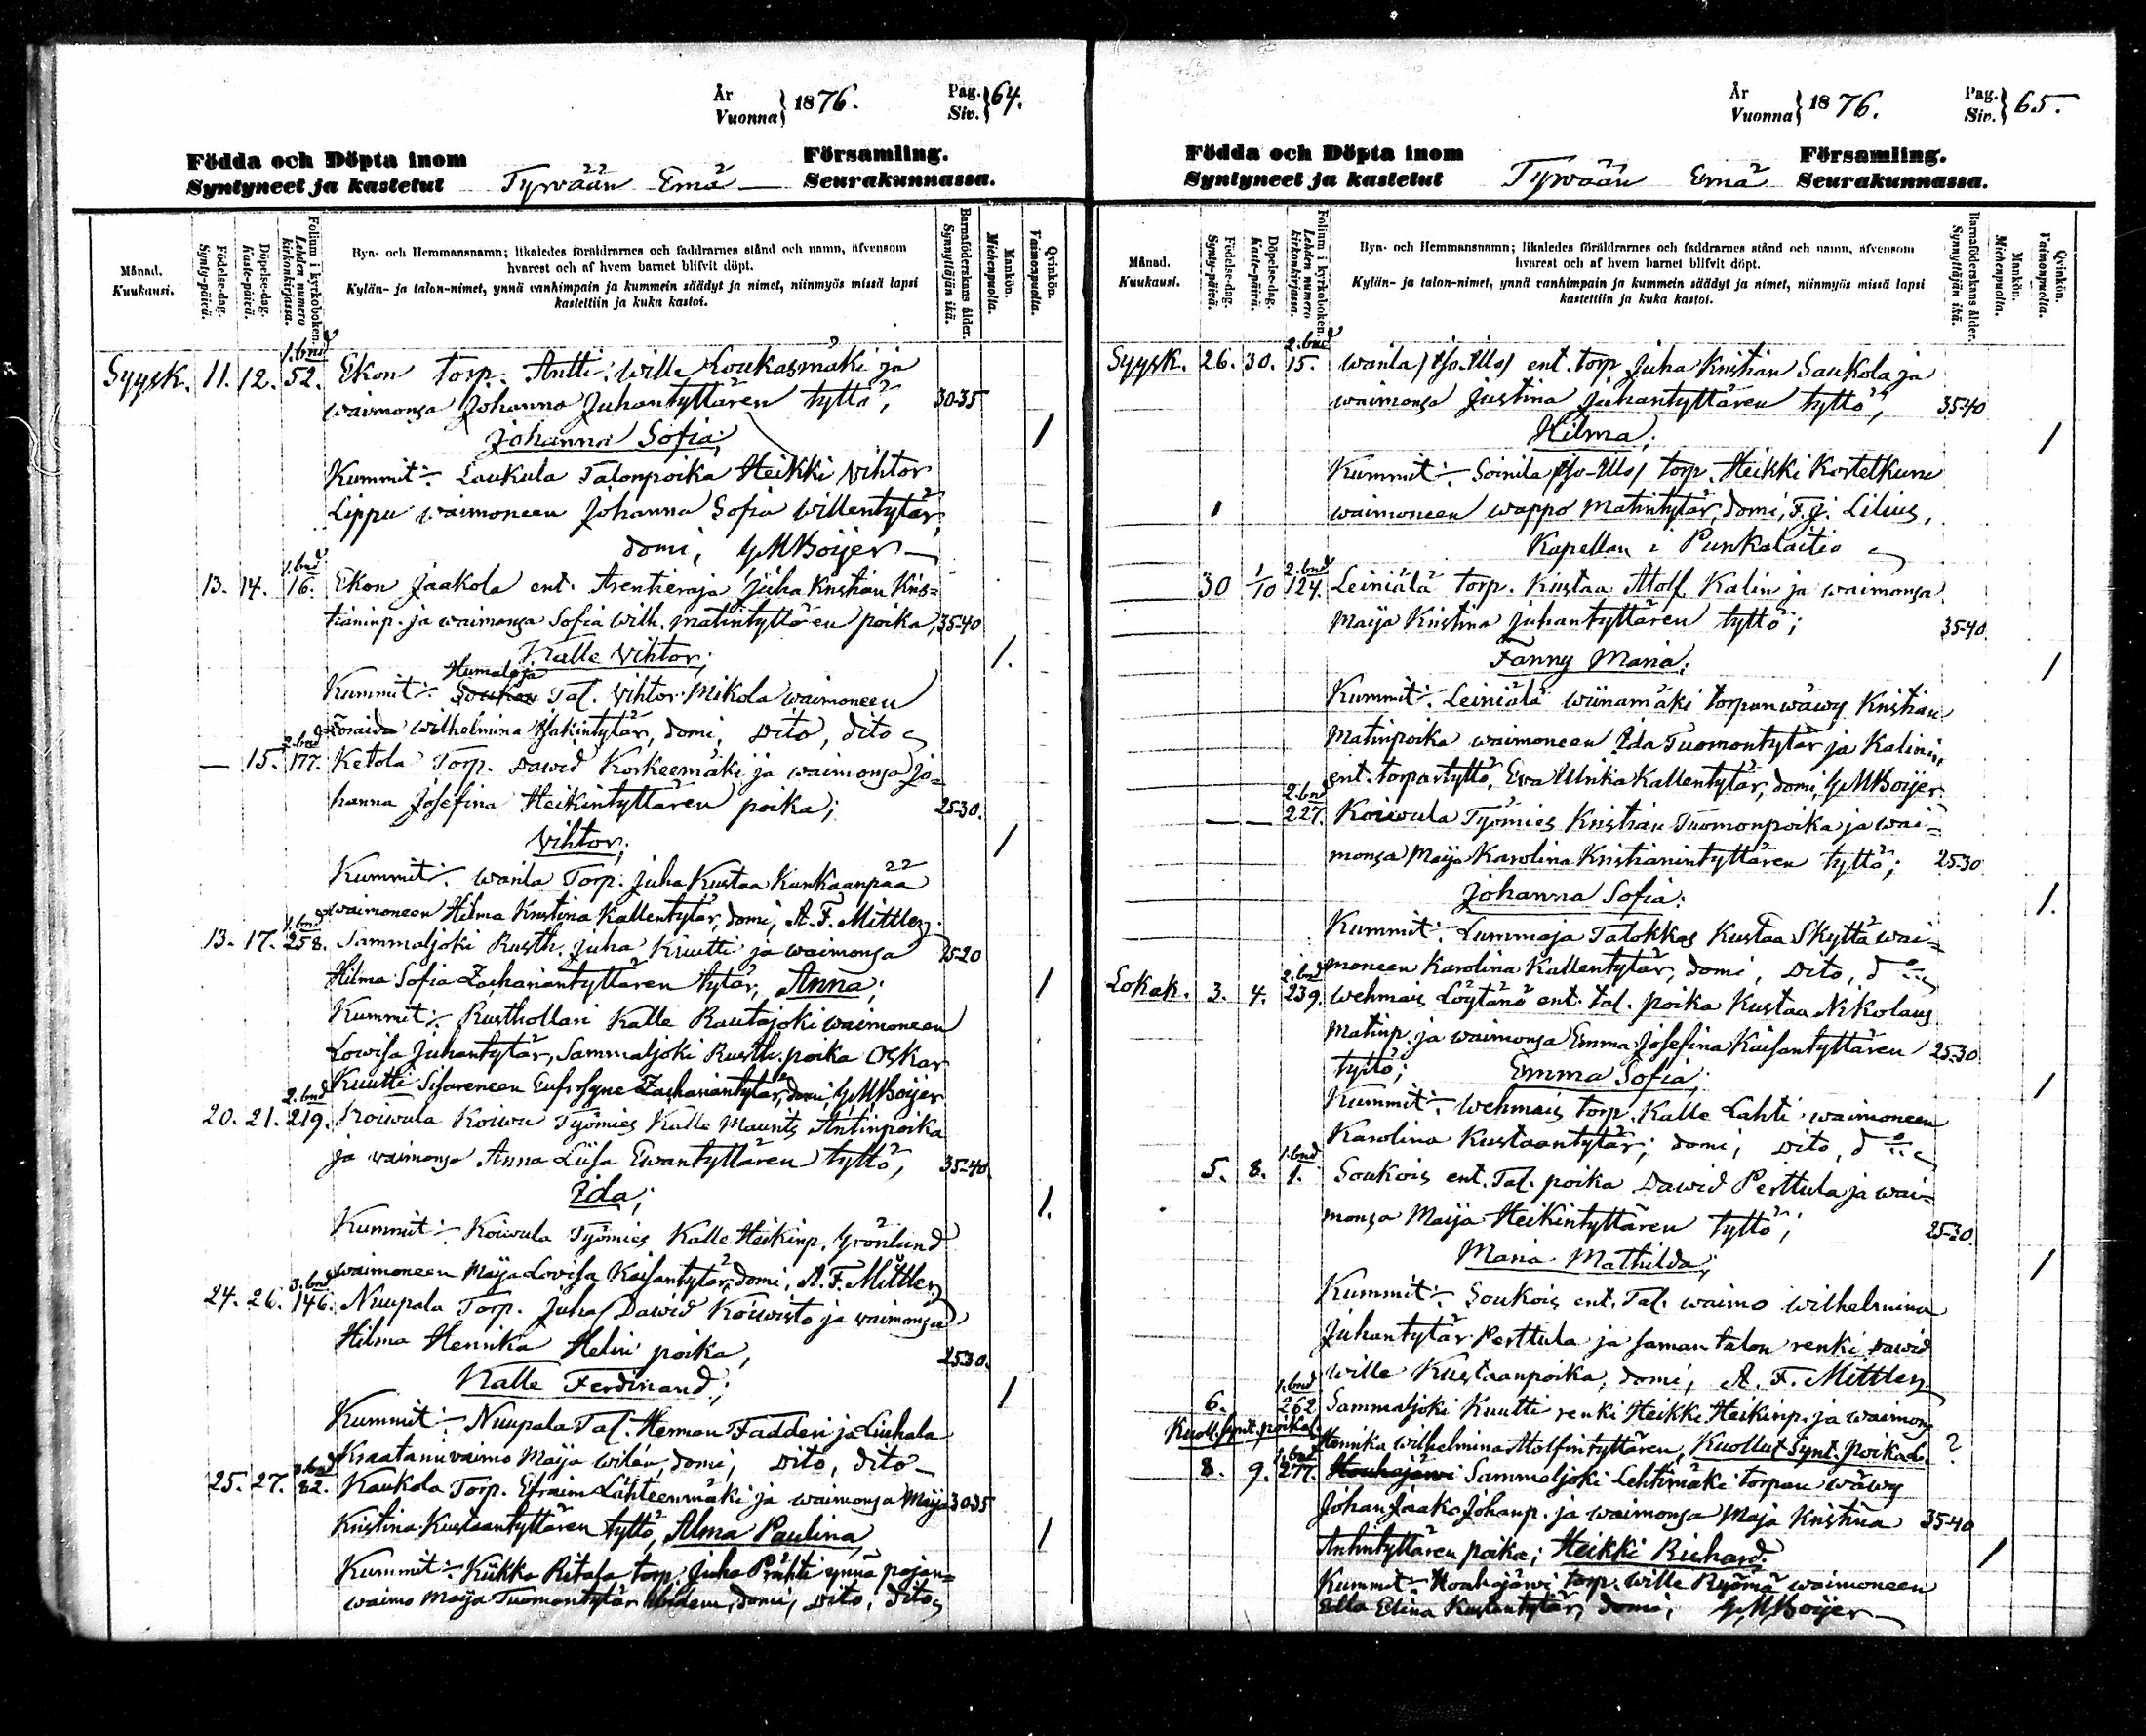 År
Vuonna } 1876.
Pag.
Siv. } 64.
Födda och Döpta inom
Syntyneet ja kastetut
Tyrvään Emä
Församling.
Seurakunnassa.
Månad.
Kuukausi.
Födelse-dag.
Synty-päivä.
Döpelse-dag.
Kaste-päivä.
Folium i kyrkoboken.
Lehden numero kirkonkirjassa.
Byn- och Hemmansnamn; likaledes föräldrarnes och faddrarnes stånd och namn, äfvensom
hvarest och af hvem barnet blifvit döpt.
Kylän- ja talon-nimet, ynnä vanhimpain ja kummein säädyt ja nimet, niinmyös missä lapsi
kastettiin ja kuka kastoi.
Barnaföderskans ålder.
Synnyttäjän ikä.
Mankön.
Miehenpuolta.
Qvinkön.
Vaimonpuolta.
1. bnd
Syysk. 11. 12. 52. Ekon torp. Antti Wille Loukasmäki ja
waimonsa Johanna Juhantyttären tyttö, 30-35
Johanna Sofia; 1
Kummit:- Laukula Talonpoika Heikki Vihtor
Lippu waimoneen Johanna Sofia Willentytär,
domi, G M Boijer
1. bnd
13. 14. 16. Ekon Jaakola ent. Arentieraja Juha Kristian Kris=
tianinp. ja waimonsa Sofia Wilh. Matintyttären poika, 35-40
Kalle Vihtor; 1.
Humaloja
Kummit:- Tal. Vihtor Mikola waimoneen
Wilhelmina Isakintytär, domi, Dito, dito
2. bnd
— 15. 177. Ketola Torp. Dawid Korkeemäki ja waimonsa Jo=
hanna Josefina Heikintyttären poika; 25-30.
Vihtor; 1
Kummit:- Wanla Torp. Juha Kustaa Kankaanpää
waimoneen Hilma Kristina Kallentytär, domi, A. F. Mittler
1. bnd
13. 17. 258. Sammaljoki Rusth. Juha Kuutti ja waimonsa 15-20
Hilma Sofia Zachariantyttären tytär, Anna; 1
Kummit:- Rusthollari Kalle Rautajoki waimoneen
Lowisa Juhantytär, Sammaljoki Rusth. poika Oskar
Kuutti Sisareneen Eufrosyne Zachariantytär, domi, G M Boijer
2. bnd
20. 21. 219. Koiwula Koiwu Työmies Kalle Maurits Antinpoika
ja waimonsa Anna Liisa Ewantyttären tyttö, 35-40
Ida; 1.
Kummit:- Koiwula Työmies Kalle Heikinp. Grönlund
waimoneen Maija Lovisa Kaisantytär, domi, A. F. Mittler
3. bnd
24. 26. 146. Nuupala Torp. Juha Dawid Koiwisto ja waimonsa
Hilma Henrika Helin poika, 25-30.
Kalle Ferdinand; 1
Kummit:- Nuupala Tal. Herman Fadderi ja Liuhala
Kraatarin waimo Maija Wilén, domi, Dito, dito
3. bnd
25. 27. 82. Kaukola Torp. Efraim Lähteenmäki ja waimonsa Maija 30-35
Kristina Kustaantyttären tyttö, Alma Paulina, 1
Kummit:- Kiikka Ritala torp. Juha Prähti ynnä pojan=
waimo Maija Tuomontytär ibidem, domi, Dito, dito
År
Vuonna } 1876.
Pag.
Siv. } 65.
Födda och Döpta inom
Syntyneet ja kastetut
Tyrvään Emä
Församling.
Seurakunnassa.
Månad.
Kuukausi.
Födelse-dag.
Synty-päivä.
Döpelse-dag.
Kaste-päivä.
Folium i kyrkoboken.
Lehden numero kirkonkirjassa.
Byn- och Hemmansnamn; likaledes föräldrarnes och faddrarnes stånd och namn, äfvensom
hvarest och af hvem barnet blifvit döpt.
Kylän- ja talon-nimet, ynnä vanhimpain ja kummein säädyt ja nimet, niinmyös missä lapsi
kastettiin ja kuka kastoi.
Barnaföderskans ålder.
Synnyttäjän ikä.
Mankön.
Miehenpuolta.
Qvinkön.
Vaimonpuolta.
2. bnd
Syysk. 26. 30. 15. Wanla ent. torp. Juha Kristian Saukola ja
waimonsa Justina Juhantyttären tyttö, 35-40
Hilma; 1
Kummit:- Soinila torp. Heikki Kortetkuru
waimoneen Wappo Matintytär, domi, F. J. Lilius,
Kapellan i Punkalaitio
2. bnd
30 1/10 124. Leiniälä torp. Kustaa Atolf Kalin ja waimonsa
Maija Kristina Juhantyttären tyttö; 35-40.
Fanny Maria; 1
Kummit:- Leiniälä Wiinamäki torpan wäwy Kristian
Matinpoika waimoneen Ida Tuomontytär ja Kalinin
ent. torpan tyttö, Ewa Ulrika Kallentytär, domi, G M Boijer
2. bnd
— — 227. Koiwula Työmies Kristian Tuomonpoika ja wai=
monsa Maija Karolina Kristianintyttären tyttö; 25-30
Johanna Sofia; 1.
Kummit:- Lummaja Talokkas Kustaa Skyttä wai=
moneen Karolina Kallentytär, domi, Dito, d:o
2. bnd
Lokak. 3. 4. 239. Wehmais Löytänö ent. tal. poika Kustaa Nikolaus
Matinp. ja waimonsa Emma Josefina Kaisantyttären 25-30.
tyttö; Emma Sofia; 1
Kummit:- Wehmais torp. Kalle Lahti waimoneen
Karolina Kustaantytär; domi, Dito, d:o
1. bnd
5. 8. 1. Soukois ent. Tal. poika Dawid Perttula ja wai=
monsa Maija Heikintyttären tyttö; 25-30.
Maria Mathilda; 1
Kummit:- Soukois ent. Tal. waimo Wilhelmina
Juhantytär Perttula ja saman talon renki Dawid
Wille Kustaanpoika, domi, A. F. Mittler
1. bnd
6. 262 Sammaljoki Kuutti renki Heikki Heikinp. ja waimons
Kuoll. synt. poikal. Henrika Wilhelmina Atolfintyttären, Kuollut Synt. poikaL. ?
1. bnd
8. 9. 277. Houhajärwi Sammaljoki Lehtimäki torpan wäwy
Johan Jaako Johanp. ja waimonsa Maja Kristina 35-40
Antintyttären poika; Heikki Richard. 1
Kummit:- Houhajärwi torp. Wille Ryömä waimoneen
Ella Elina Kustantytär, domi, G M Boijer